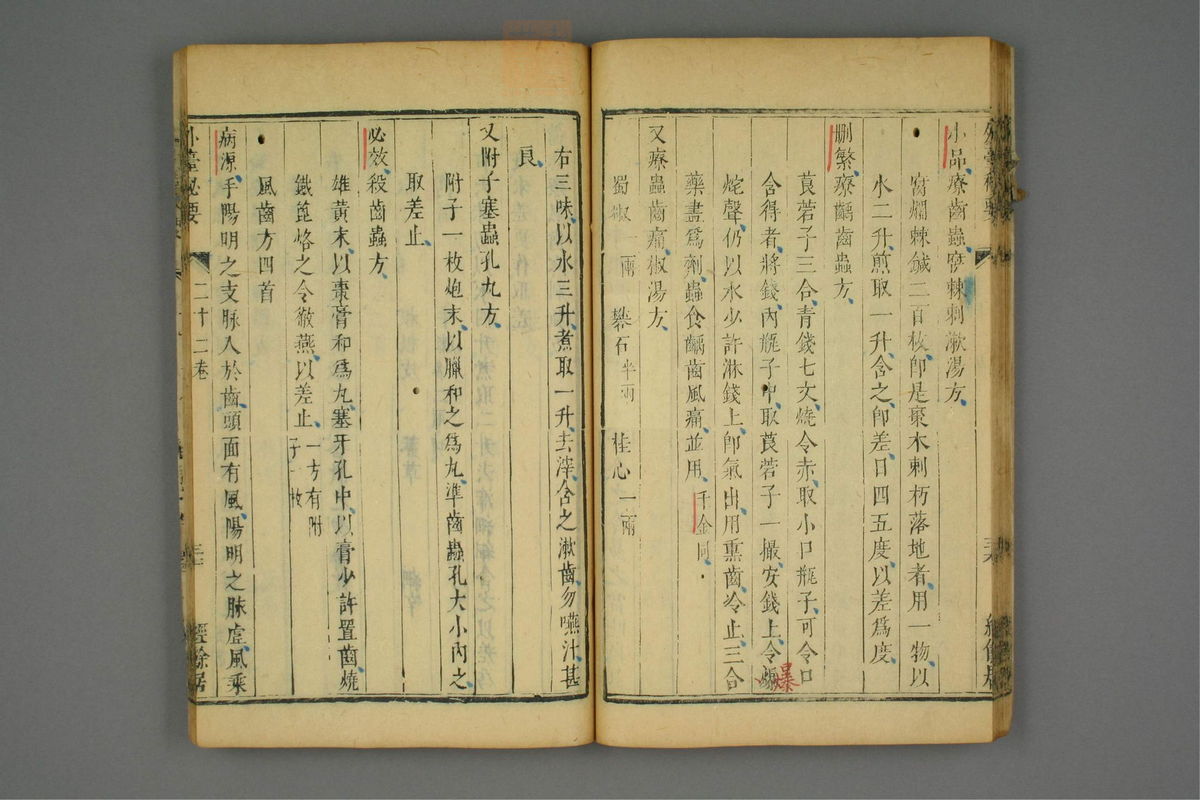 小品療齒蟲腐棘刺漱湯方
腐爛棘鍼二百枚即是棗木刺朽落地者用一物以
水二升煎取一升含之即差日四五度以差爲度
刪繁療齲齒蟲方
莨菪子三合青錢七文燒令赤取小口瓶子可令口
含得者將錢內瓶子中取莨菪子一撮安錢上令
爆
炨聲仍以水少許淋錢上即氣出用熏齒冷止三合
藥盡爲劑蟲食齲齒風痛並用千金同
又療蟲齒痛椒湯方
蜀椒一兩 礬石半兩 桂心一兩
右三味以水三升煮取一升去滓含之漱齒勿嚥汁甚
良
又附子塞蟲孔丸方
附子一枚炮末以臘和之爲丸準齒蟲孔大小內之
取差止
必效殺齒蟲方
雄黃末以棗膏和爲丸塞牙孔中以膏少許置齒燒
鐵篦烙之令徹熱以差止一方有附
子一枚
風齒方四首
病源手陽明之支脉入於齒頭面有風陽明之脉虛風乘
外臺秘要 二十二卷 經餘居